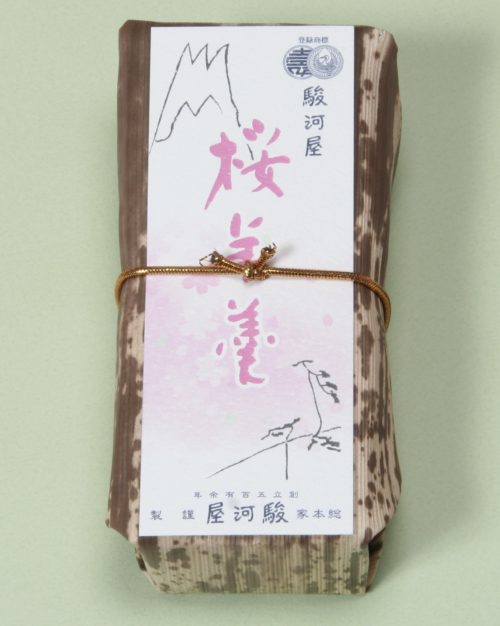 登録商標
駿河屋
桜羊羹
年余有百五立創
製謹 屋河駿 家本総